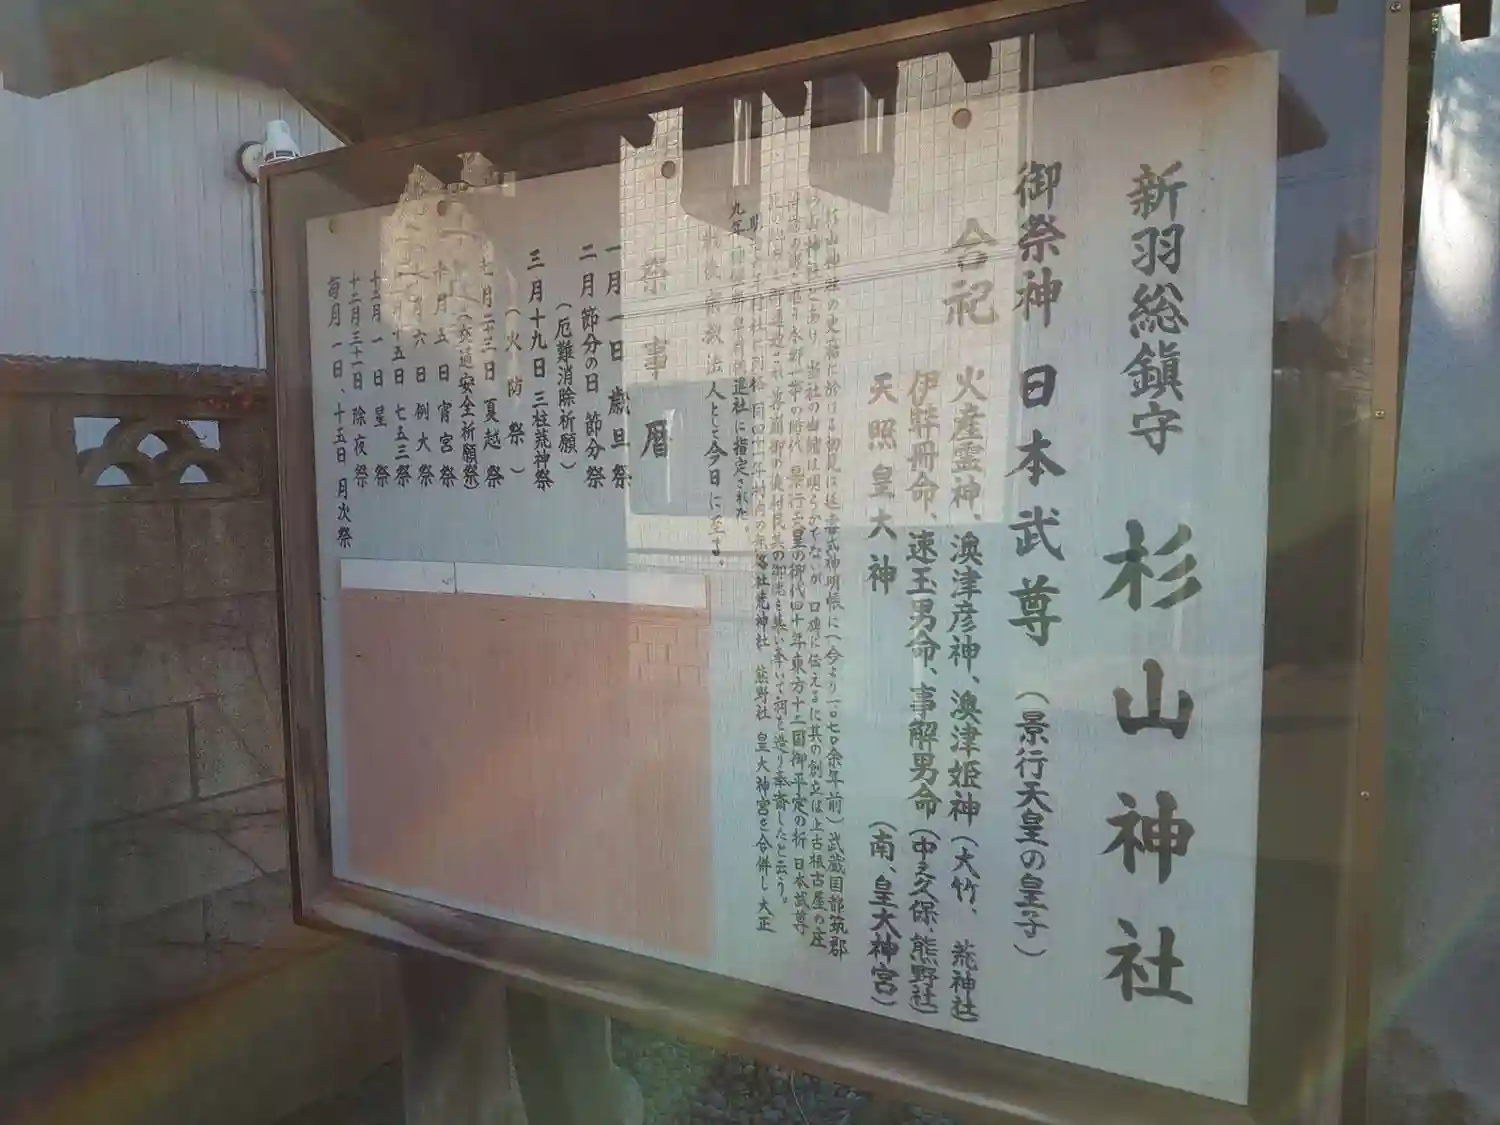 新羽総鎮守 杉山神社
御祭神 日本武尊 (景行天皇の皇子)
合祀
火産霊神、澳津彦神、澳津姫神 (大竹、荒神社)
伊弉冊命、速玉男命、事解男命 (中之久保、熊野社)
天照皇大神 (南、皇大神宮)
に於ける初見は延喜式神明帳に(今より一〇七〇余年前)武蔵国都筑郡
の山神社とあり 当社の由緒は明らかでないが 口碑に伝えるに其の創立は上古根古屋の庄
の時代 景行天皇の御代四十年東方十二国御平定の折 日本武尊
尊崇御の後村民其の御徳を慕い奉いて祠を造り奉斎したと云う。
村社に列格 同四十一年村内の 荒神社 熊野社 皇大神宮を合併し 大正
九年 進社に指定された。
戦後宗教法人として今日に至る。
祭事暦
一月一日 歳旦祭
二月節分の日 節分祭
(厄難消除祈願)
三月十九日 三柱荒神祭
(火防祭)
七月二十三日 夏越祭
(交通安全祈願祭)
十月五日 宵宮祭
月六日 例大祭
十五日 七五三祭
月一日 星祭
十二月三十一日 除夜祭
毎月一日、十五日 月次祭